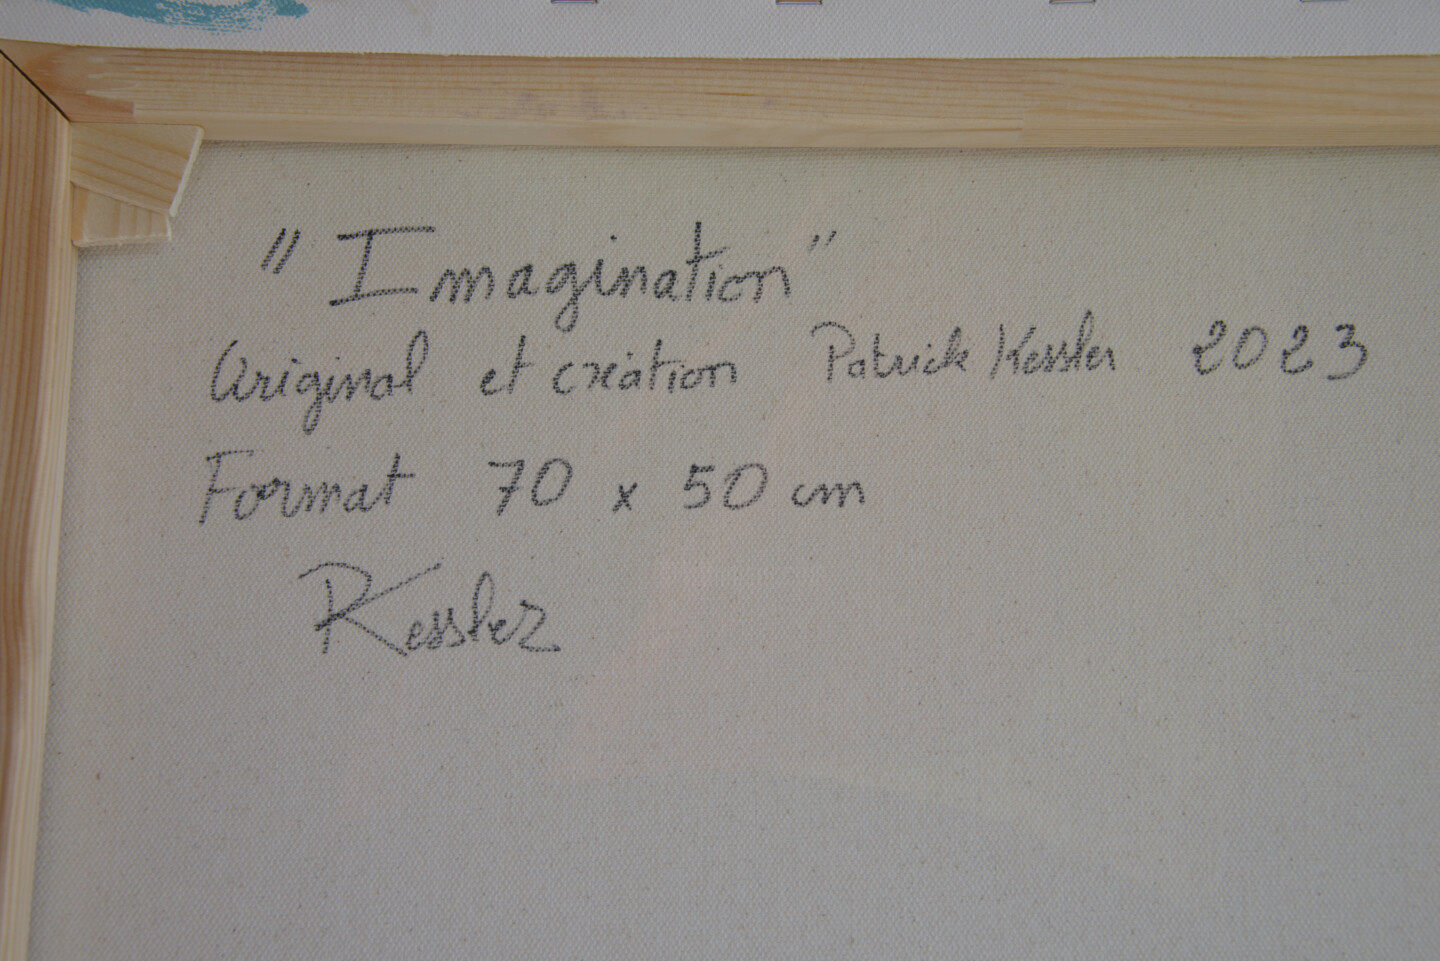 "Imagination"
Original et création Patrick Kessler 2023
Format 70 x 50 cm
PKessler